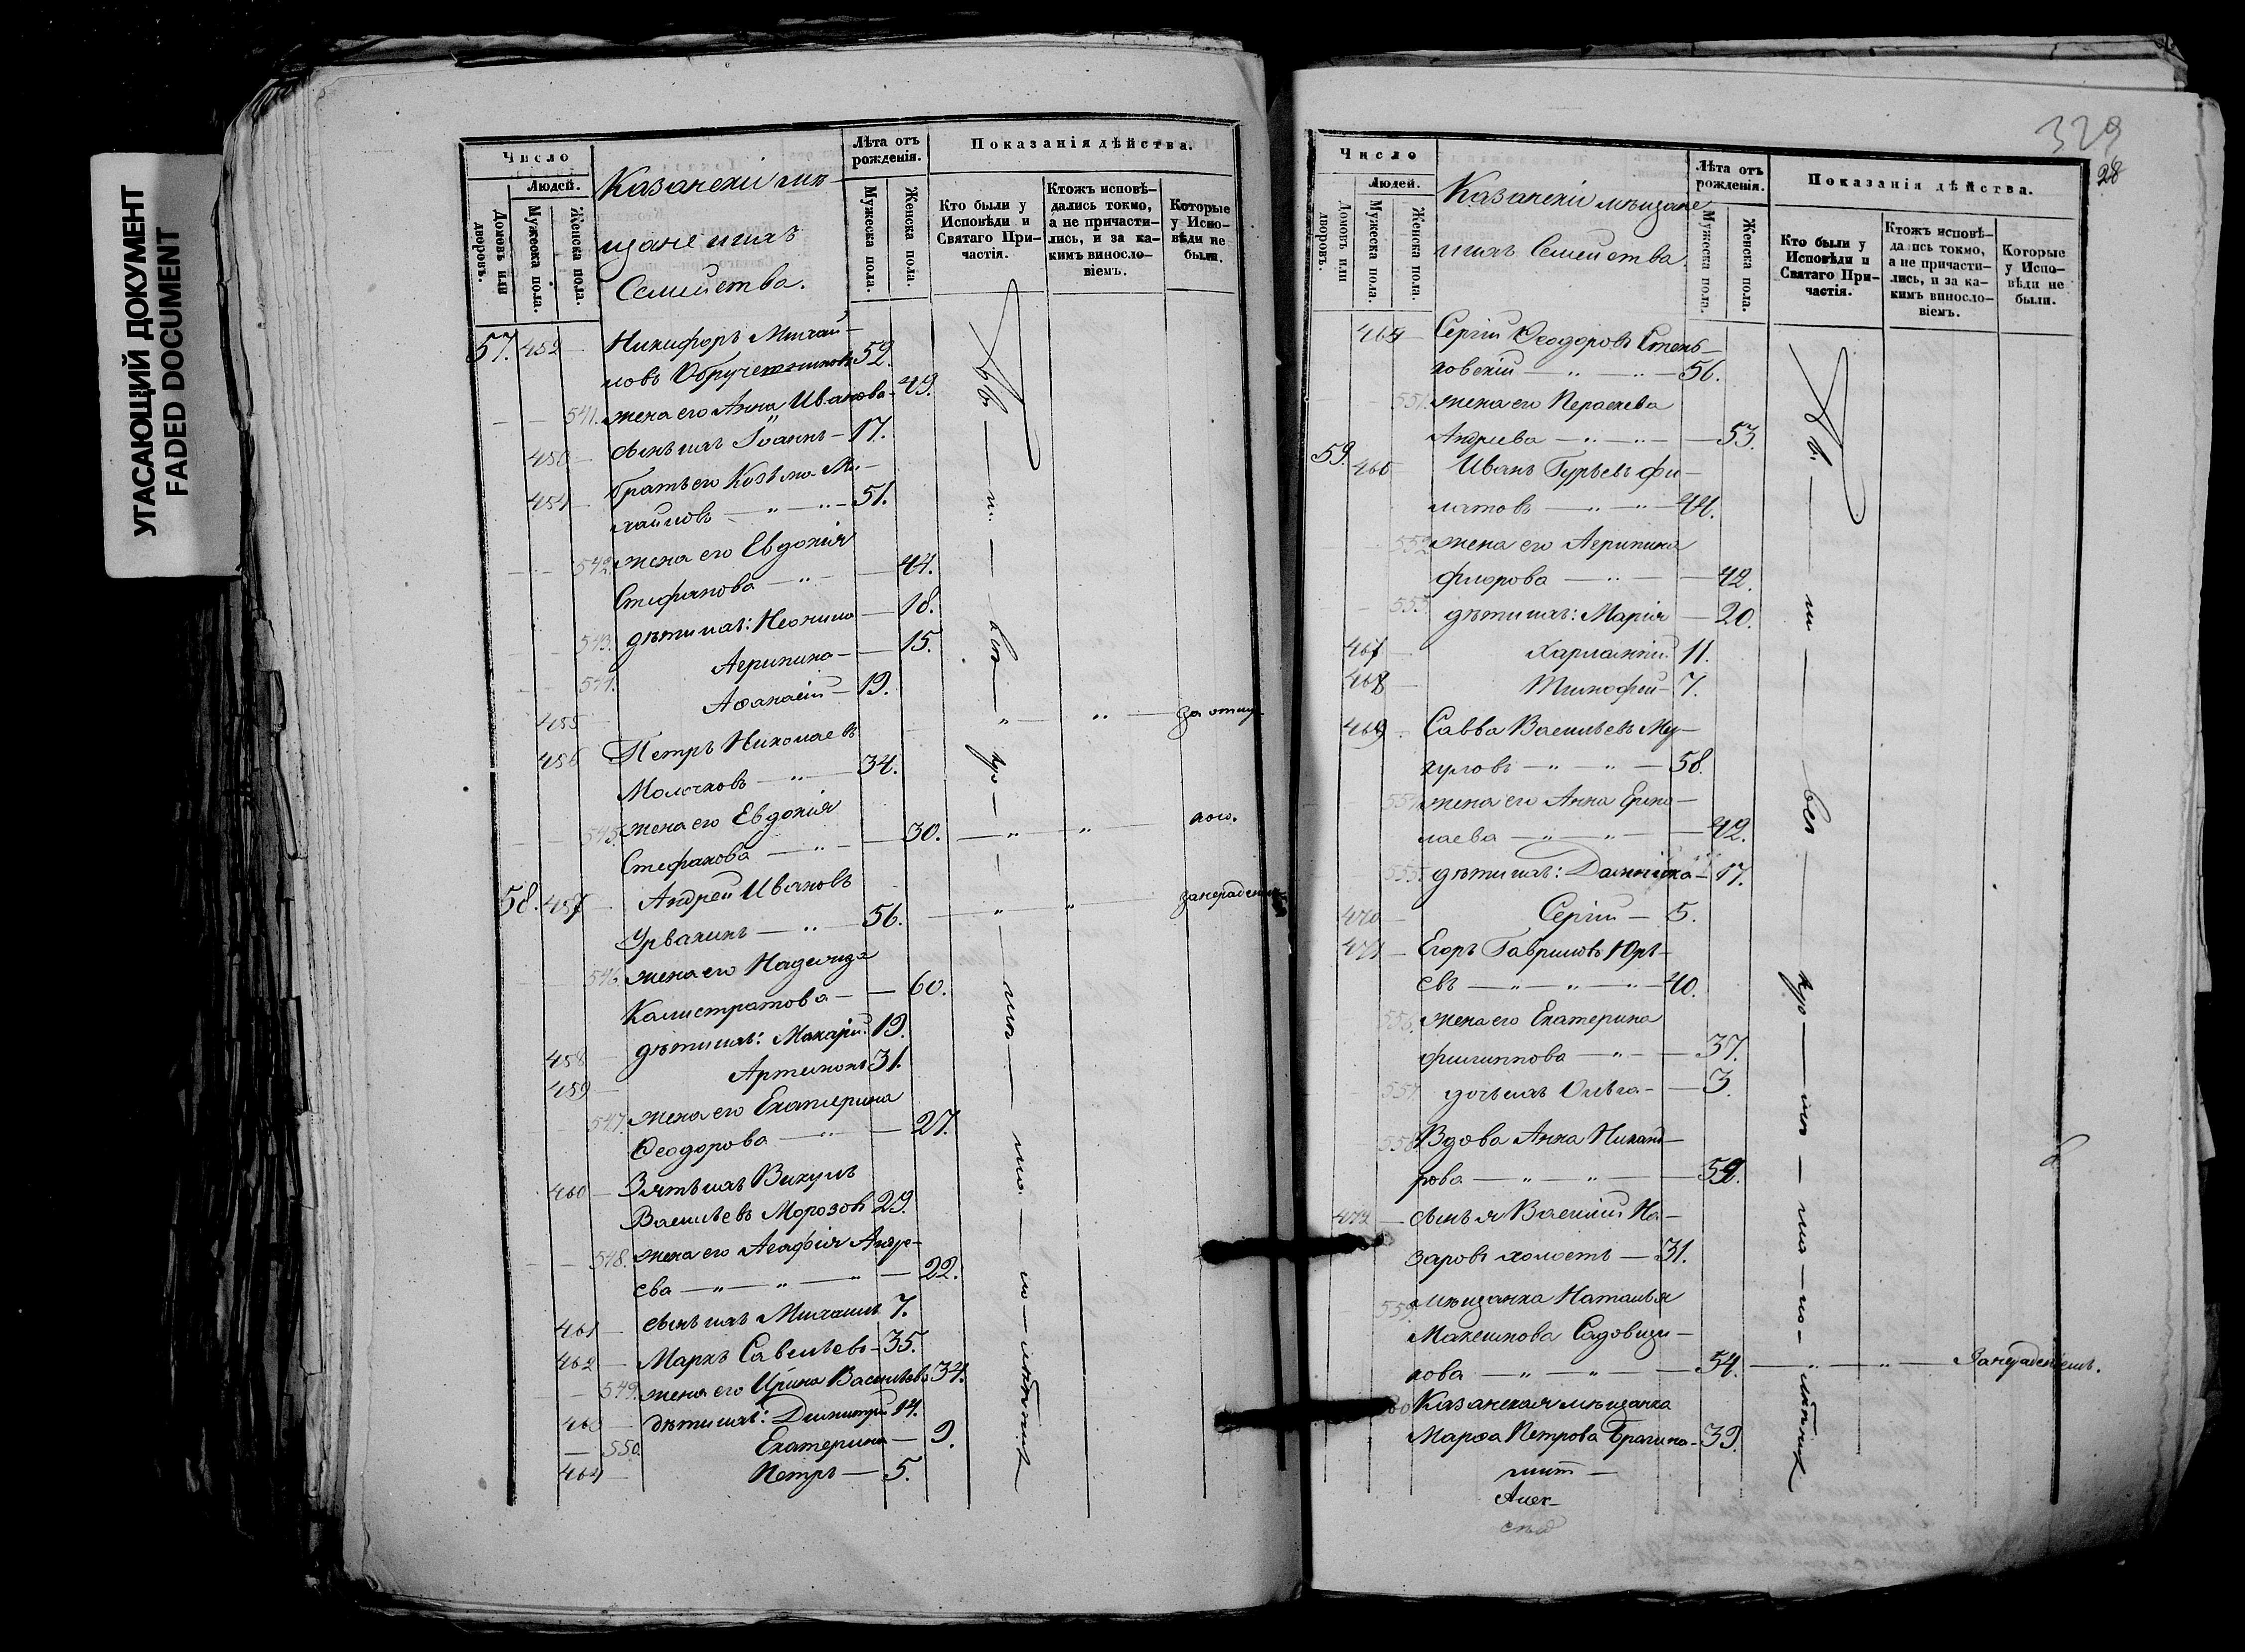 УГАСАЮЩИЙ ДОКУМЕНТ
FADED DOCUMENT
Число
Людей.
Домовъ или дворовъ.
Мужеска пола.
Женска пола.
Казанскіи мѣ-
щане и ихъ
Семейства.
Лѣта отъ рожденія.
Мужеска пола.
Женска пола.
Показанія дѣйства.
Кто были у Исповѣди и Святаго При-частія.
Ктожъ исповѣ-дались токмо, а не причасти-лись, и за ка-кимъ винсло-віемъ.
Которые у Испо-вѣди не были.
57. 452 Никифоръ Михаи-
ловъ Обручешниковъ 52.
541. жена его Анна Иванова 49.
453 сынъ ихъ Іоаннъ 17.
454 братъ его Козьма Ми-
хаиловъ 51.
542. жена его Евдокія
Стефанова 44.
543. дѣти ихъ: Неонила 18.
544. Агрипина 15.
455 Афанасій 19. за отлу-
456 Петръ Николаевъ
Молочковъ 34.
545. жена его Евдокія
Стефанова 30.
58. 457 Андрей Ивановъ
Урванинъ 56.
546. жена его Надежда
Калистратова 60.
458 дѣти ихъ: Макарій 19.
459 Артемонъ 31.
547. жена его Екатерина
Ѳеодорова 27.
460 Зять ихъ Викулъ
Васильевъ Морозовъ 29.
548. жена его Агафія Андре-
ева 22.
461 сынъ ихъ Михаилъ 7.
462 Маркъ Савельевъ 35.
549. жена его Ирина Васильева 34.
463 дѣти ихъ: Димитрій 14.
550. Екатерина 9.
464 Петръ 5.
329
28
Число
Людей.
Домовъ или дворовъ.
Мужеска пола.
Женска пола.
Казанскіи мѣщане
и ихъ Семейства.
Лѣта отъ рожденія.
Мужеска пола.
Женска пола.
Показанія дѣйства.
Кто были у Исповѣди и Святаго При-частія.
Ктожъ исповѣ-дались токмо, а не причасти-лись, и за ка-кимъ винсло-віемъ.
Которые у Испо-вѣди не были.
465 Сергій Ѳеодоровъ
ковскій 56.
551. жена его Параскева
Андреева 53.
59. 466 Иванъ Гурьевъ Фи-
латовъ 44.
552 жена его Агрипина
Флорова 42.
553. дѣти ихъ: Марія 20.
467 Харлампій 11.
468 Тимофей 7.
469 Савва Васильевъ Му-
куловъ 58.
554. жена его Анна Ермо-
лаева 42.
555. дѣти ихъ: Домника 17.
470 Сергій 5.
471 Егоръ Гавриловъ Юрь-
евъ 40.
556. жена его Екатерина
Филиппова 37.
557. дочь ихъ Ольга 3.
558. Вдова Анна Никанд-
рова 59.
472 сынъ я Василій На-
заровъ холостъ 31.
559. мѣщанка Наталья
Максимова Садовщи-
кова 54. Занерадѣніемъ.
Казанская мѣщанка
Марѳа Петрова Брагина 39.